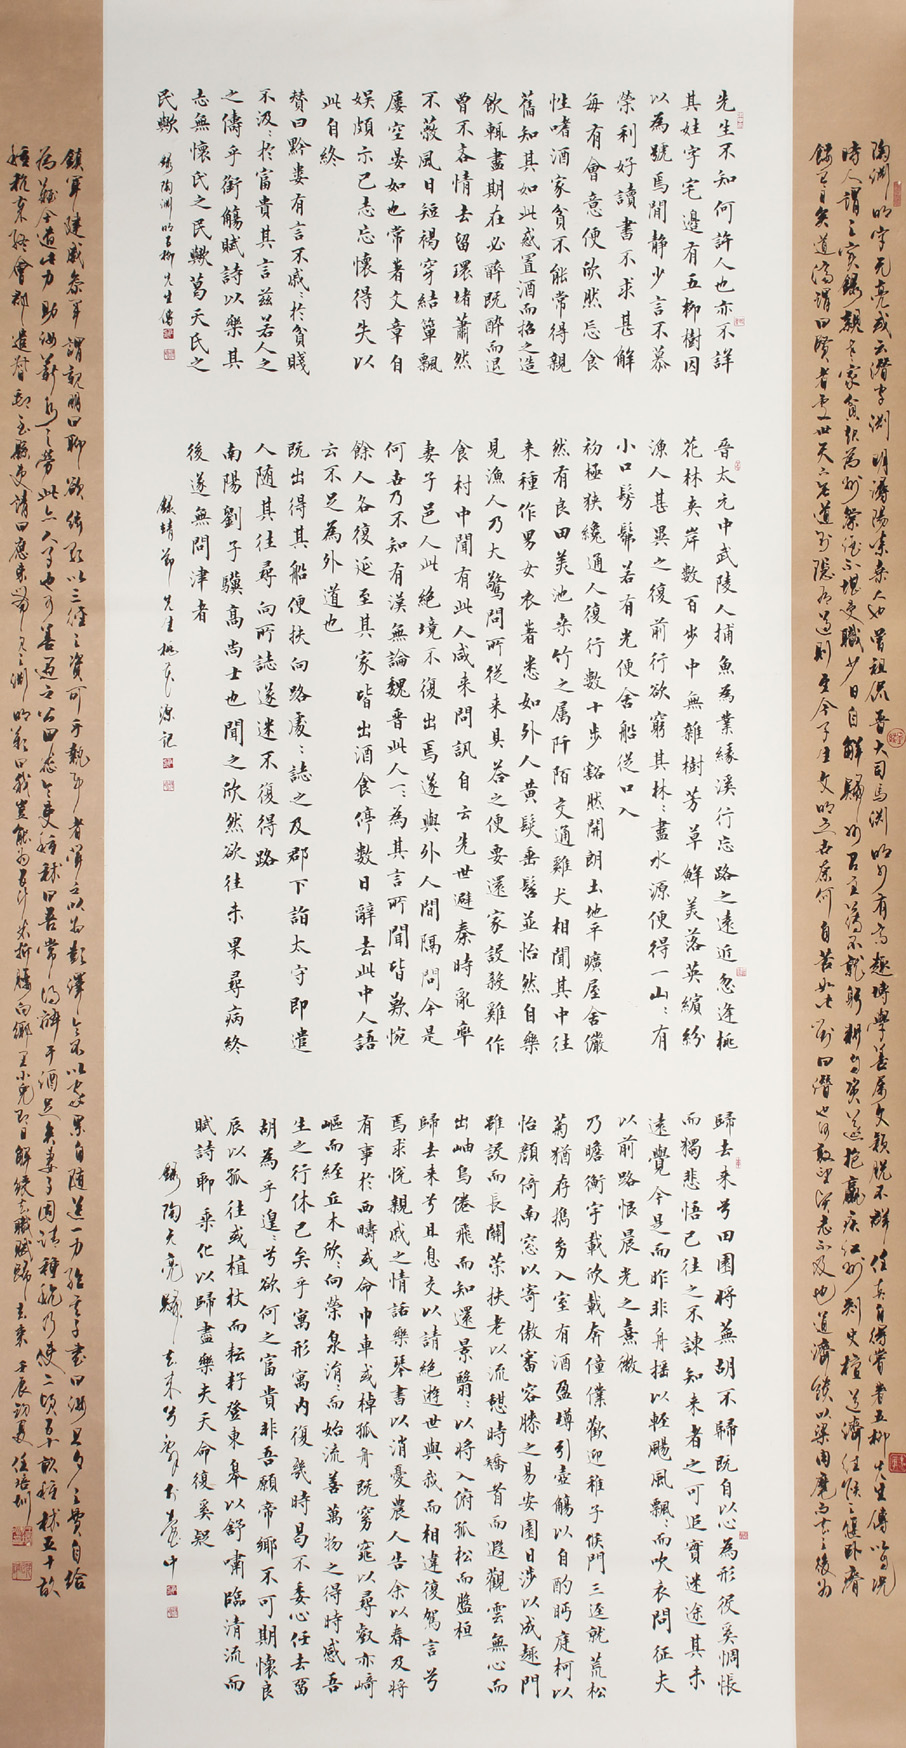 陶渊明字元亮或云潛字渊明潯陽柴桑人也曾祖侃晋大司馬渊明少有高趣博學善屬文穎脱不群任真自得嘗著五柳先生傳以自况
時人謂之實録親老家貧起為州祭酒不堪吏職少日自解歸州召主簿不就躬耕自資遂抱羸疾江州刺史檀道濟往候之偃卧瘠
餒有日矣道濟謂曰賢者處世天下無道則隱有道則至今子生文明之世奈何自苦如此對曰潛也何敢望賢志不及也道濟饋以粱肉麾而去之後為
先生不知何許人也亦不詳
其姓字宅邊有五柳樹因
以為號焉閒静少言不慕
榮利好讀書不求甚解
每有會意便欣然忘食
性嗜酒家貧不能常得親
舊知其如此或置酒而招之造
飲輒盡期在必醉既醉而退
曾不吝情去留環堵蕭然
不蔽風日短褐穿結簞瓢
屢空晏如也常著文章自
娱頗示己志忘懷得失以
此自終
贊曰黔婁有言不戚〻於貧賤
不汲〻於富貴其言兹若人之
之儔乎銜觴賦詩以樂其
志無懷氏之民歟葛天氏之
民歟 録陶渊明五柳先生傳
晉太元中武陵人捕魚為業緣溪行忘路之遠近忽逢桃
花林夹岸數百步中無雜樹芳草鮮美落英繽紛
漁人甚異之復前行欲窮其林〻盡水源便得一山〻有
小口髣髴若有光便舍船從口入
初極狹纔通人復行數十步豁然開朗土地平曠屋舍儼
然有良田美池桑竹之属阡陌交通雞犬相聞其中往
来種作男女衣著悉如外人黄髮垂髫並怡然自樂
見漁人乃大驚問所從来具荅之便要還家設殺雞作
食村中聞有此人咸来問訊自云先世避秦時亂率
妻子邑人此絶境不復出焉遂與外人間隔問今是
何世乃不知有漢無論魏晉此人一〻為其言所聞皆歎惋
餘人各復延至其家皆出酒食停數日辭去此中人語
云不足為外道也
既出得其船便扶向路處〻誌之及郡下詣太守即遣
人随其往尋向所誌遂迷不復得路
南陽劉子驥高尚士也聞之欣然欲往未果尋病終
後遂無問津者
録靖節先生桃花源記
歸去来兮田園將蕪胡不歸既自以心為形役奚惆悵
而獨悲悟已往之不諫知来者之可追實迷途其未
遠覺今是而昨非舟摇以輕颺風飄〻而吹衣問征夫
以前路恨晨光之熹微
乃瞻衡宇載欣載奔僮僕歡迎稚子候門三逕就荒松
菊猶存攜幼入室有酒盈罇引壺觴以自酌眄庭柯以
怡顏倚南窓以寄傲審容膝之易安園日涉以成趣門
雖設而長關策扶老以流憩時矯首而遐觀雲無心而
出岫鸟倦飛而知還景翳〻以將入俯孤松而盤桓
歸去来兮且息交以請絶遊世與我而相違復駕言兮
焉求悦親戚之情話樂琴書以消憂農人告余以春及將
有事於西疇或命巾車或棹孤舟既窈窕以尋壑亦崎
嶇而經丘木欣〻向榮泉涓〻而始流善萬物之得時感吾
生之行休已矣乎寓形寓内復幾時曷不委心任去留
胡為乎遑〻兮欲何之富貴非吾願帝鄉不可期懷良
辰以孤往或植杖而耘耔登東皋以舒嘯臨清流而
賦詩聊乘化以歸盡樂夫天命復奚疑
録陶元亮歸去来兮辭於
鎮軍建威參軍謂親朋曰聊欲絃歌以三徑之資可乎執事者聞之以為彭澤令不以家累自随送一力給其子書曰汝旦夕之費自給
為難今遣此力助汝薪水之勞此亦人子也可善遇之公田悉令吏種秫曰吾常得醉于酒足矣妻子固請種粳乃使二頃五十畝種秫五十畝
種粳歲終會郡遣督郵至縣吏請曰應束帶見之渊明歎曰我豈能為五斗米折腰向鄉里小兒即日解綬去職賦歸去来 壬辰初夏任培圳